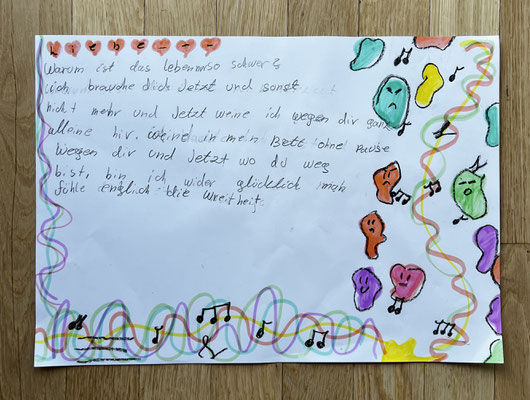 Liebe---
Warum ist das leben so schwer
ich brauche dich Jetzt und sonst
nicht mehr und Jetzt weine ich wegen dir ganz
alleine hir. weine in mein Bett ohne pause
wegen dir und Jetzt wo du weg
bist, bin ich wider glücklich man
fühle englich die